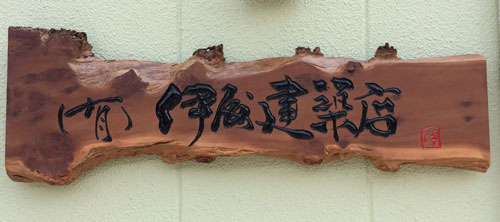 (有)伊辰建築店